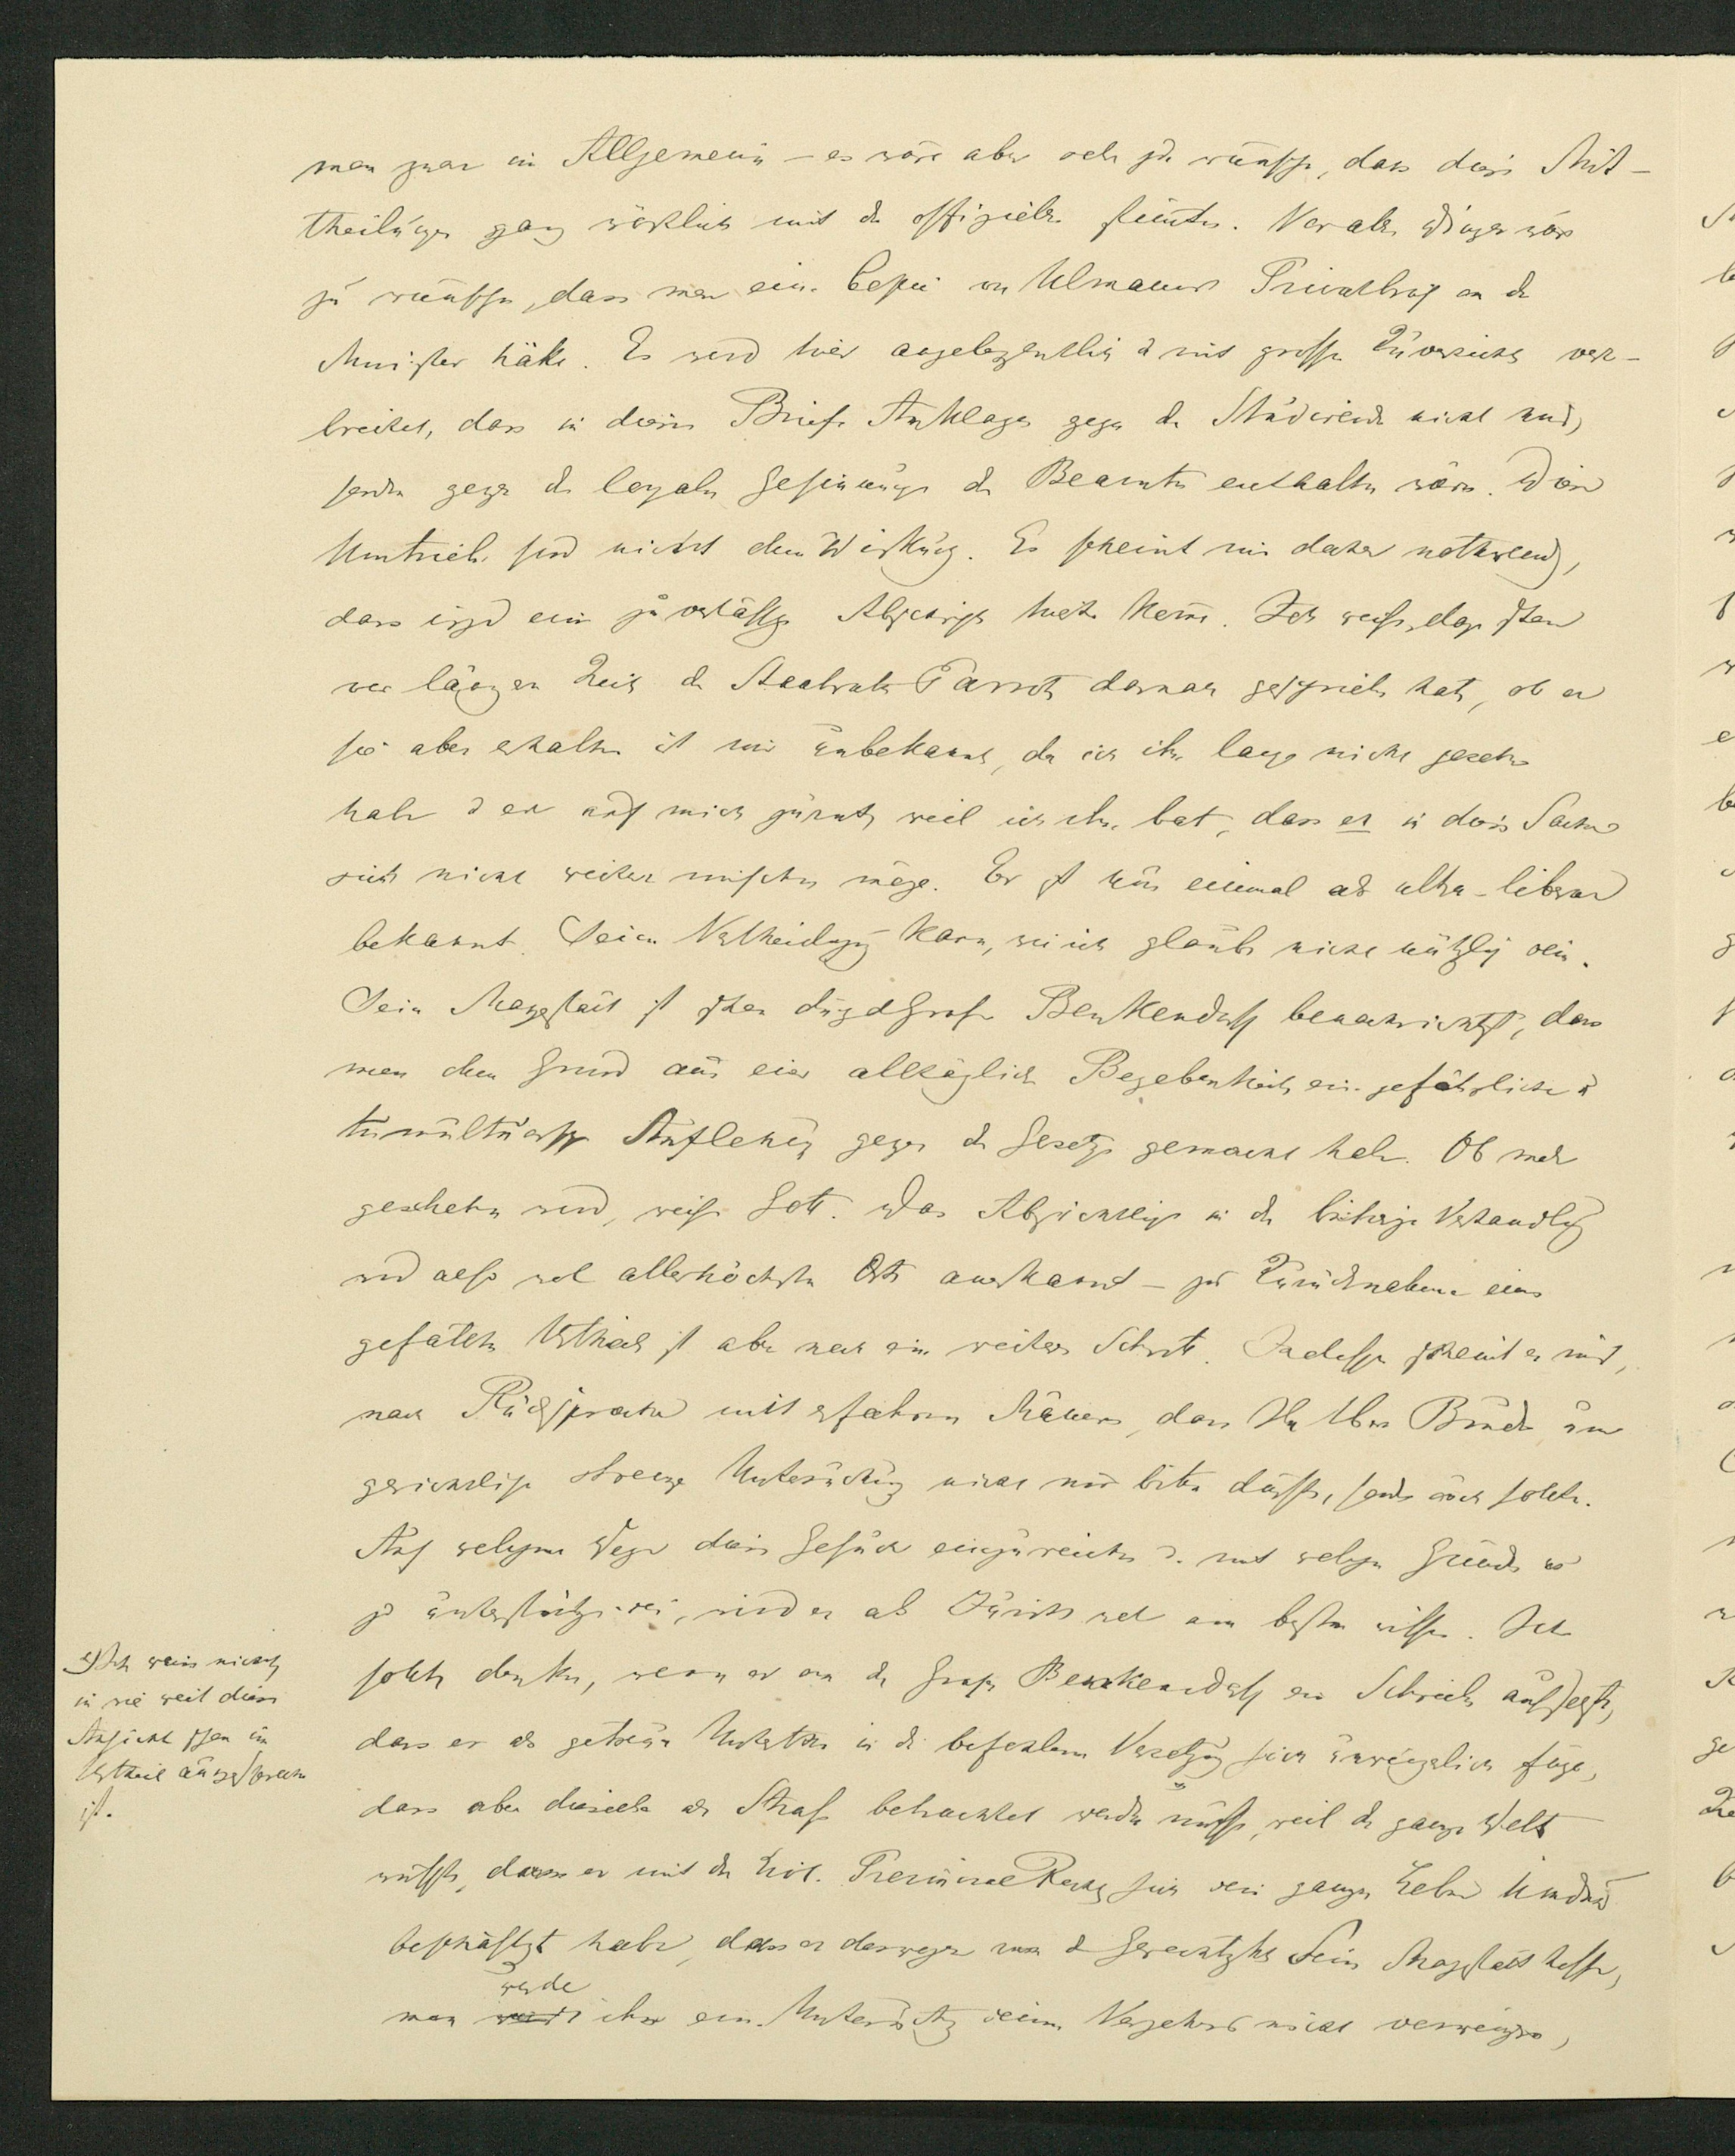 man zwar im Allgemeinen – es wäre aber sehr zu wünschen, dass diese Mit-
theilungen ganz wörtlich mit den offiziellen stimmten. Vor allen Dingen wäre
zu wünschen, dass man eine Copie von Ulmanns Privatbrief an den
Minister hätte. Es wird hier angelegentlich u mit grosser Zuversicht ver-
breitet, dass in diesem Briefe Anklagen gegen die Studirenden nicht nur,
sondern gegen die loyalen Gesinnungen der Beamten enthalten wären. Diese
Umtriebe sind nicht ohne Wirkung. Es scheint mir daher nothwendig,
dass irgend eine zuverlässige Abschrift käme. Ich weiss, dass schon
vor längerer Zeit der Staatsrath Parrot darnach geschrieben hat, ob er
sie aber erhalten ist mir unbekannt, da ich ihn lange nicht gesehen
habe u er auf mich zürnt, weil ich ihn bat, dass er in diese Sache
sich nicht weiter mischen möge. Er ist nun einmal als ultra-liberal
bekannt. Seine Vertheidigung kann, wie ich glaube nicht nützlich sein.
Seine Majestät ist schon durch d Grafen Benkendorff benachrichtigt, dass
man ohne Grund aus einer alltäglichen Begebenheit eine gefährliche u
tumultuarische Auflehnung gegen die Gesetze gemacht habe. Ob mehr
geschehen wird, weiss Gott. Das Absichtliche in den bisherigen Verhandlungen
wird also wol allerhöchsten Orts anerkannt – zur Zurücknahme eines
gefällten Urtheils ist aber noch ein weiter Schritt. Indessen scheint es mir,
nach Rücksprache mit erfahrnen Männern, dass Ihr Herr Bruder um
gerichtliche strenge Untersuchung nicht nur bitten dürfte, sondern auch sollte.
Auf welchem Wege dies Gesuch einzureichen u. mit welchen Gründen es
zu unterstützen sei, wird er als Jurist wol am besten wissen. Ich
sollte denken, wenn er an den Grafen Benkendorff ein Schreiben aufsetzte,
dass er als getreuer Unterthan in die befohlene Versetzung sich unweigerlich füge,
dass aber dieselbe als Strafe betrachtet werden müsse, weil die ganze Welt
wüsste, dass er mit dem Liv. Provincial Recht sich sein ganzes Leben hindurch
beschäftigt habe, dass er deswegen von d Gerechtigkeit Seiner Majestät hoffe,
man werde ihm eine Untersuchung seines Vergehens nicht verweigern,
x) Ich weiss nicht,
in wie weit diese
Ansicht schon im
Urtheil ausgesprochen
ist.